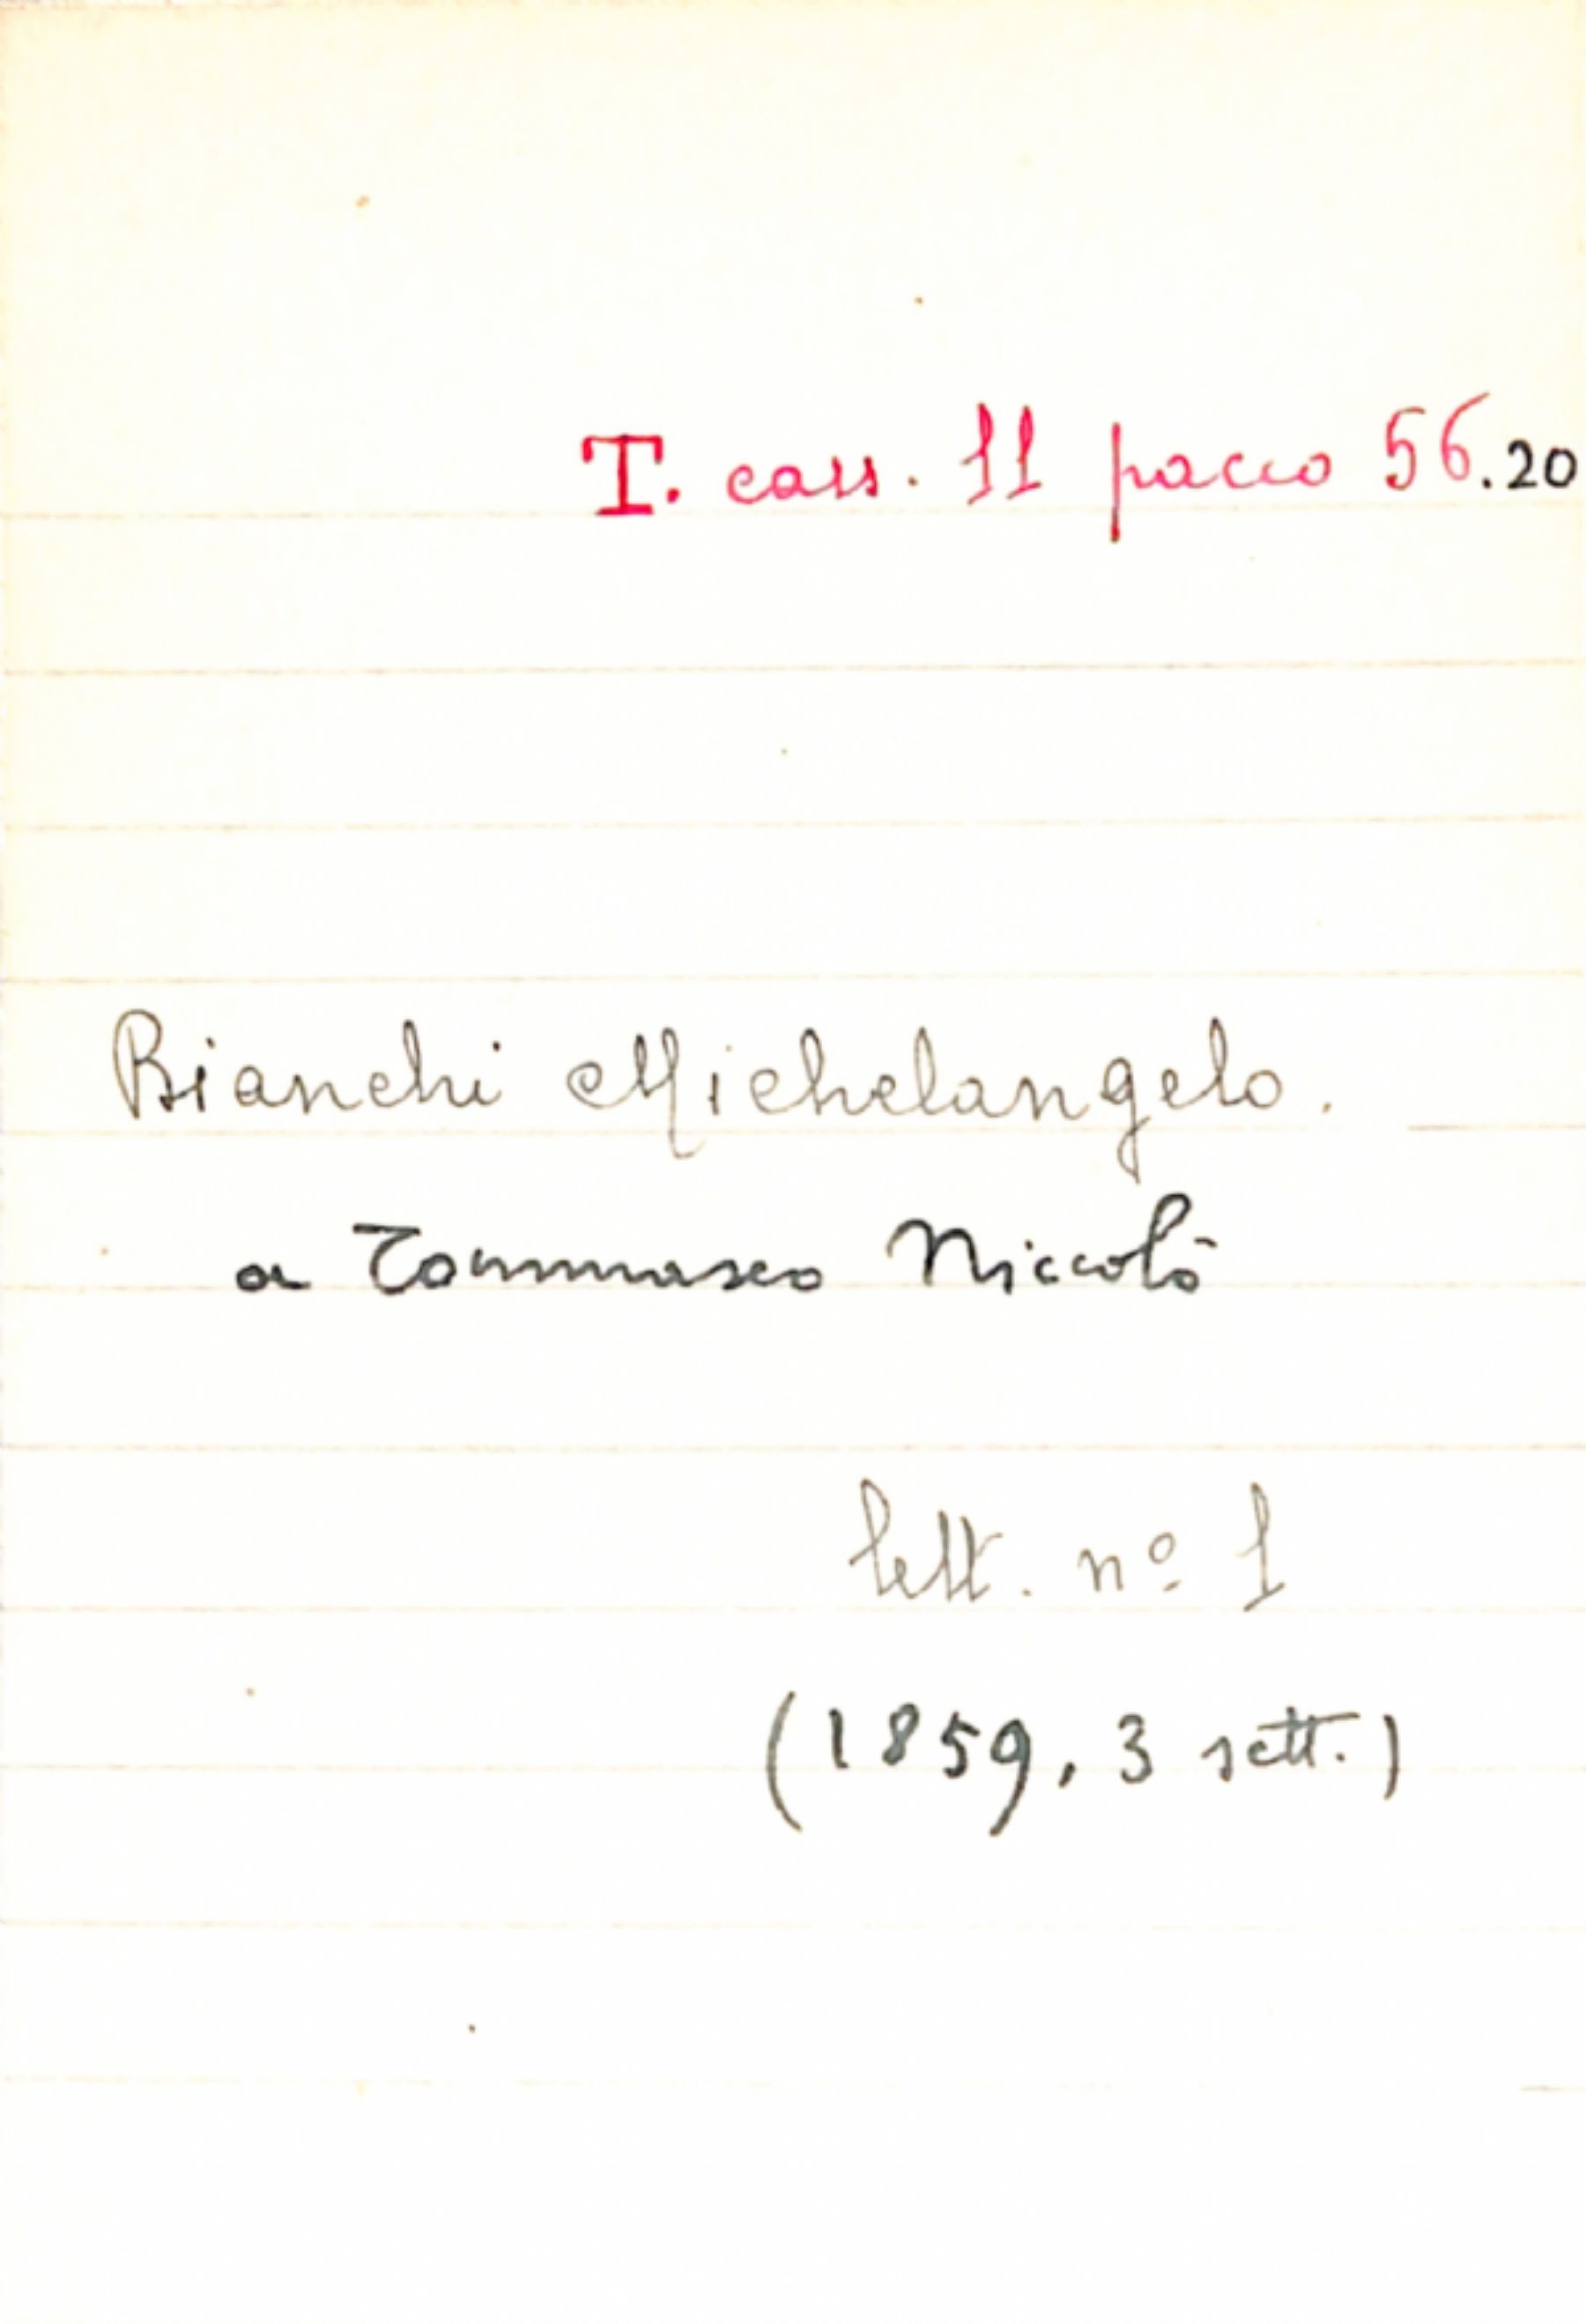 T. cass. 11 pacco 56.20
Bianchi Michelangelo.
a Tommaseo Niccolò
lett. nº 1
(1859, 3 sett.)